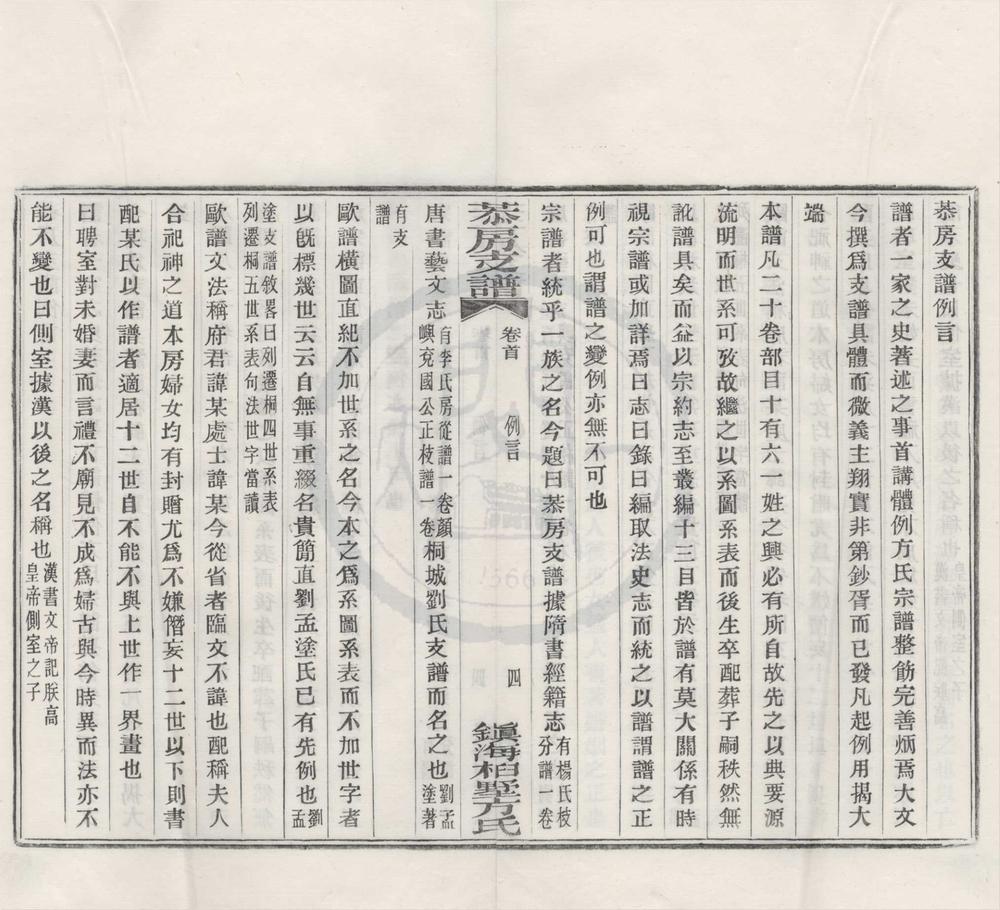 恭房支譜例言
譜者一家之史著述之事首講體例方氏宗譜整飭完善炳焉大文
今撰爲支譜具體而微義主翔實非第鈔胥而已發凡起例用揭大
端
本譜凡二十卷部目十有六一姓之興必有所自故先之以典要源
流明而世系可攷故繼之以系圖系表而後生卒配葬子嗣秩然無
訛譜具矣而益以宗約志至叢編十三目皆於譜有莫大關係有時
視宗譜或加詳焉曰志曰錄曰編取法史志而統之以譜謂譜之正
例可也謂譜之變例亦無不可也
宗譜者統乎一族之名今題曰恭房支譜據隋書經籍志有楊氏枝分譜一卷
恭房支譜 卷首 例言 四 鎮海柏墅方氏
唐書藝文志有李氏房從譜一卷顏嶼兖國公正枝譜一卷桐城劉氏支譜而名之也劉孟塗著
有支譜
歐譜橫圖直紀不加世系之名今本之爲系圖系表而不加世字者
以旣標幾世云云自無事重綴名貴簡直劉孟塗氏已有先例也劉孟
塗支譜敘畧曰列遷桐四世系表列遷桐五世系表句法世字當讀
歐譜文法稱府君諱某處士諱某今從省者臨文不諱也配稱夫人
合祀神之道本房婦女均有封贈尤爲不嫌僭妄十二世以下則書
配某氏以作譜者適居十二世自不能不與上世作一界畫也
曰聘室對未婚妻而言禮不廟見不成爲婦古與今時異而法亦不
能不變也曰側室據漢以後之名稱也漢書文帝記朕高皇帝側室之子